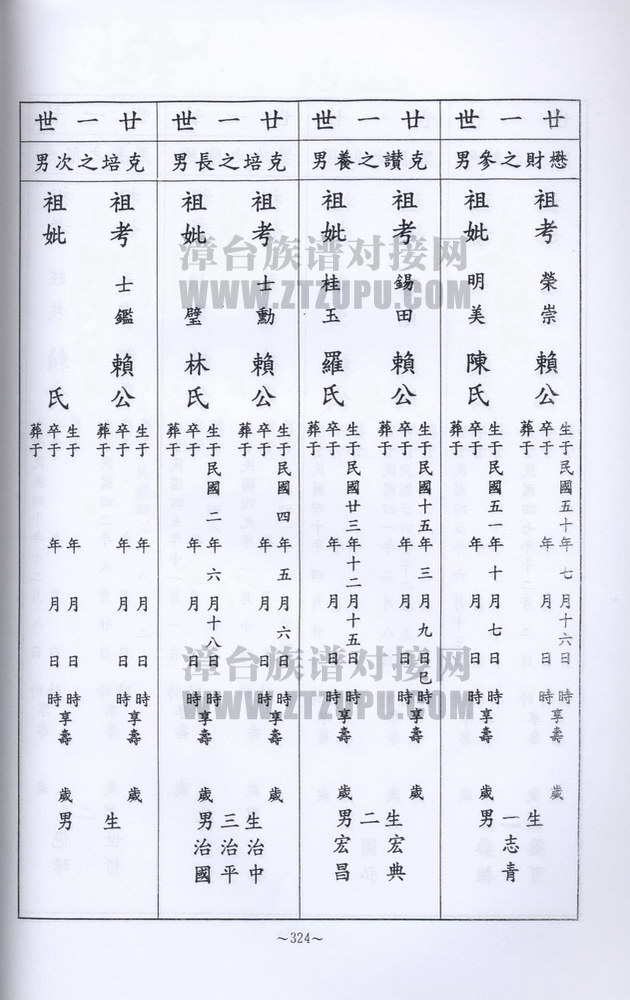 廿一世
懋財之參男
祖考 榮崇 賴公
生于民國五十年七月十六日時
卒于 年 月 日 時享壽 歲
葬于
祖妣 明美 陳氏
生于民國五一年十月七日時
卒于 年 月 日 時享壽 歲
葬于
生一男
志青
廿一世
克讃之養男
祖考 錫田 賴公
生于民國十五年三月九日巳時
卒于 年 月 日 時享壽 歲
葬于
祖妣 桂玉 羅氏
生于民國廿三年十二月十五日時
卒于 年 月 日 時享壽 歲
葬于
生二男
宏典
宏昌
廿一世
克培之長男
祖考 士勳 賴公
生于民國四年五月六日時
卒于 年 月 日 時享壽 歲
葬于
祖妣 璧 林氏
生于民國一年六月十八日時
卒于 年 月 日 時享壽 歲
葬于
生三男
治中
治平
治國
廿一世
克培之次男
祖考 士鑑 賴公
生于 年 月 日 時
卒于 年 月 日 時享壽 歲
葬于
祖妣 氏
生于 年 月 日 時
卒于 年 月 日 時享壽 歲
葬于
生 男
~324~
漳台族谱对接网
WWW.ZTZUPU.COM
漳台族谱对接网
WWW.ZTZUPU.COM